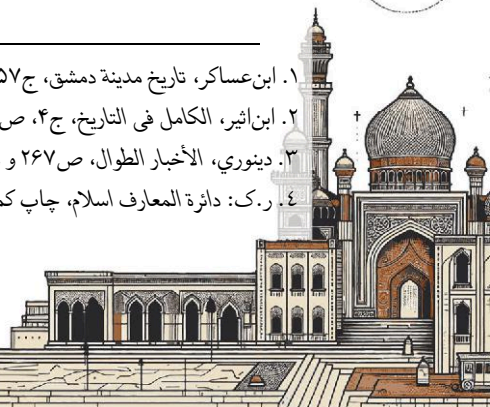 ۱. ابن‌عساکر، تاریخ مدینة دمشق، ج۵۷
۲. ابن‌اثیر، الکامل فی التاریخ، ج۴، ص
۳. دینوري، الأخبار الطوال، ص۲۶۷ و
٤. ر.ک: دائرة المعارف اسلام، چاپ